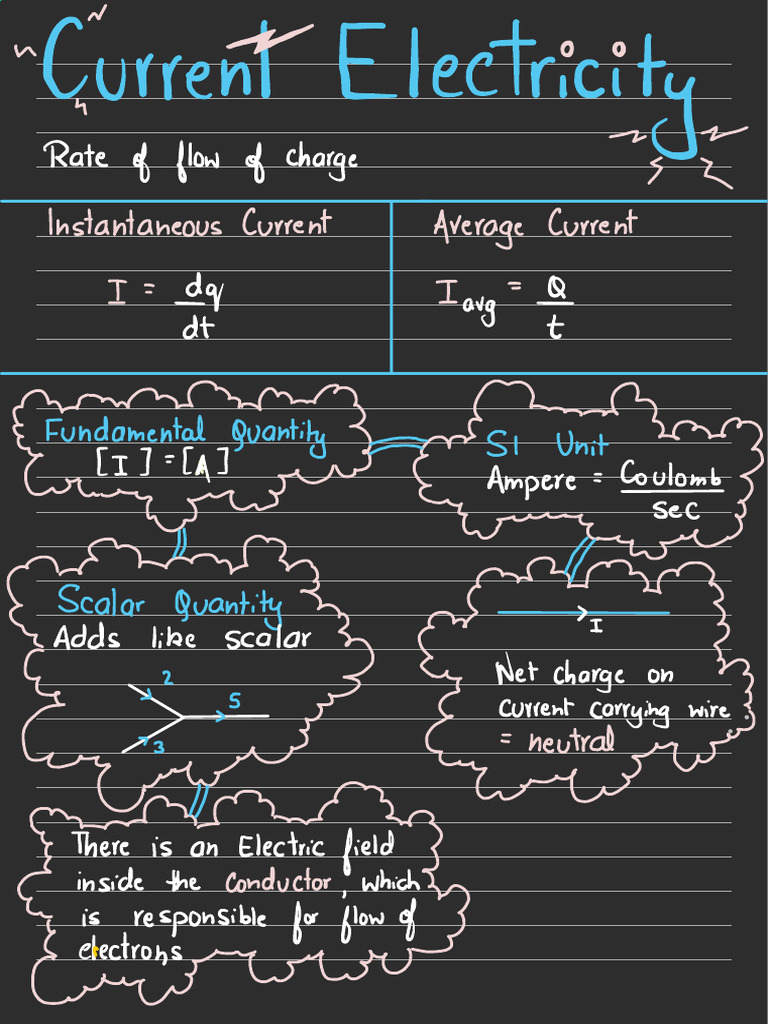 Current Electricity
Rate of flow of charge
Instantaneous Current
I = dq
dt
Average Current
I avg = Q
t
Fundamental Quantity
[I] = [A]
SI Unit
Ampere = Coulomb
sec
Scalar Quantity
Adds like scalar
2
5
3
I
Net charge on
current carrying wire
= neutral
There is an Electric field
inside the conductor, which
is responsible for flow of
electrons